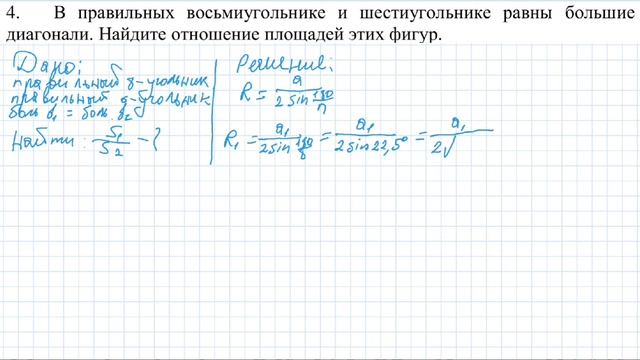 4. В правильных восьмиугольнике и шестиугольнике равны большие
диагонали. Найдите отношение площадей этих фигур.
Дано:
правильный 8-угольник
правильный 6-угольник
боль d₁ = боль. d₂
Найти: S₁/S₂ - ?
Решение:
R = a/(2 sin 180/n)
R₁ = a₁/(2 sin 180/8) = a₁/(2 sin 22,5°) = a₁/(2√